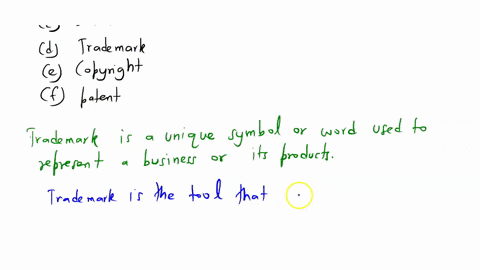 (d) Trademark
(e) Copyright
(f) patent
Trademark is a unique symbol or word used to
represent a business or its products.
Trademark is the tool that